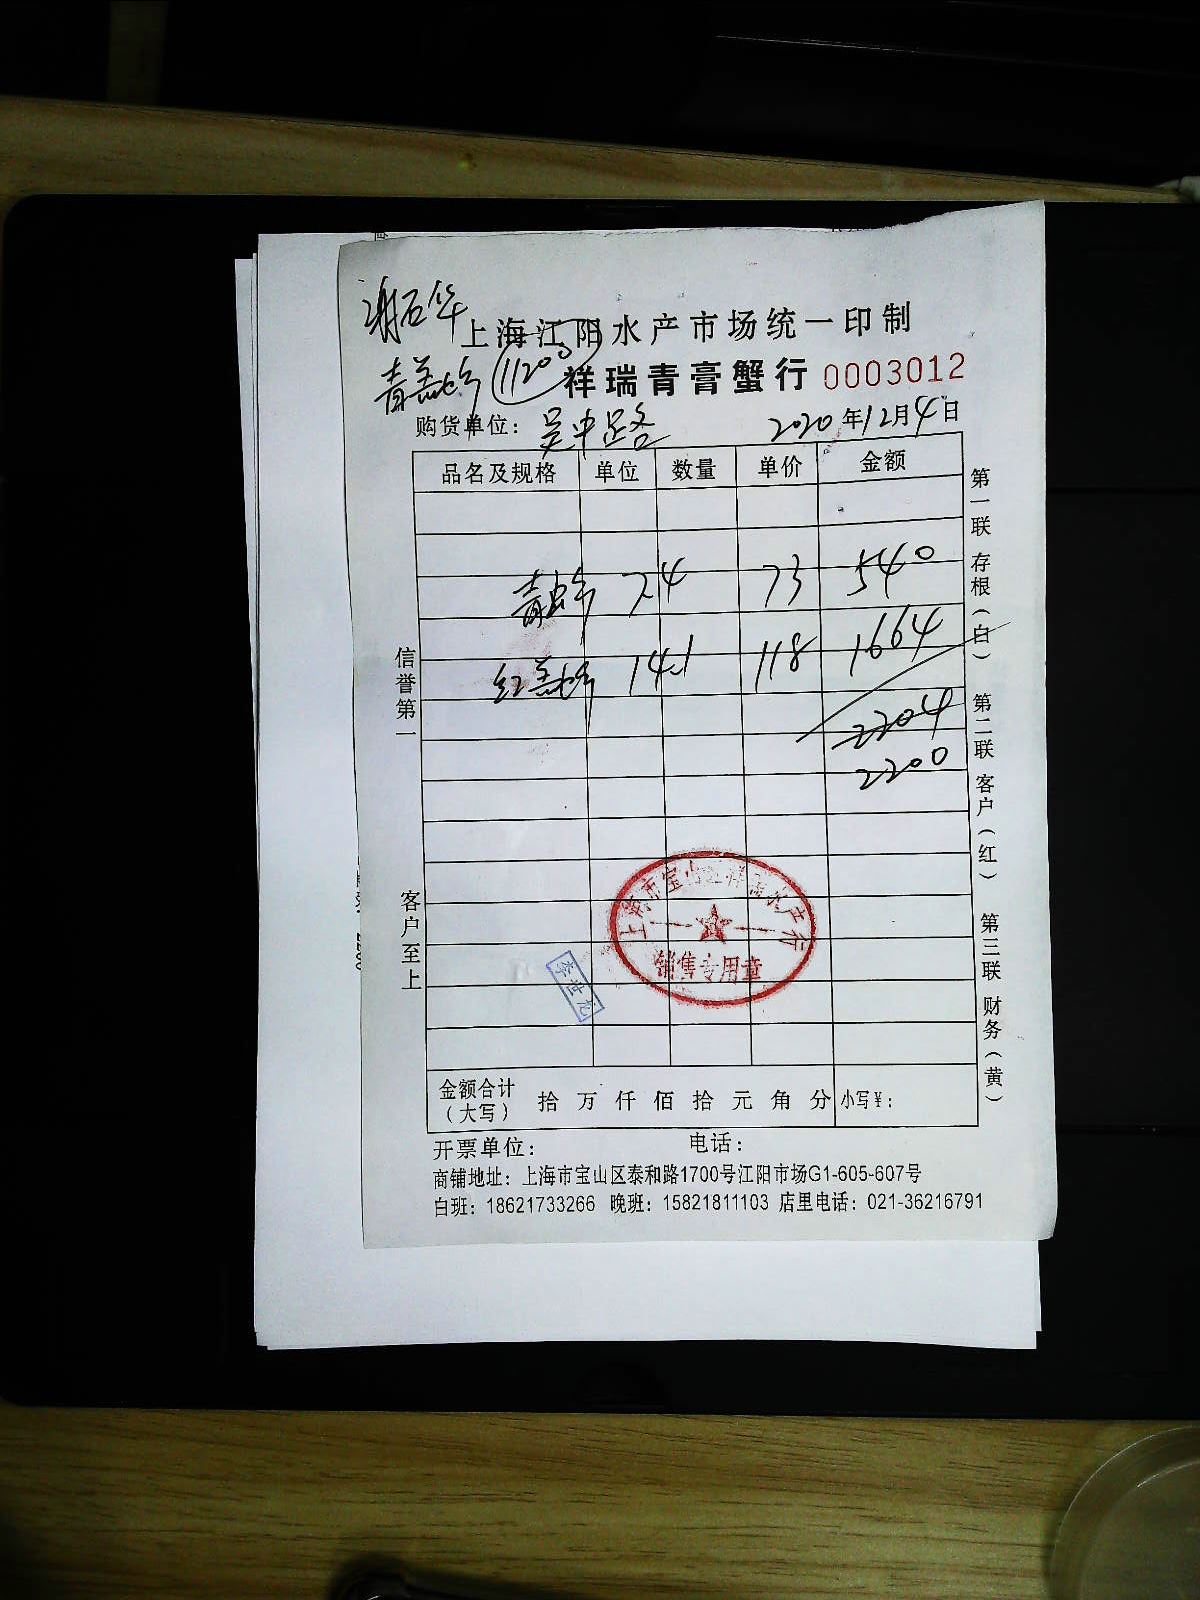 谢石华
上海江阳水产市场统一印制
青羔蟹 11200
祥瑞青膏蟹行 0003012
购货单位: 吴中路 2020年12月4日
品名及规格 单位 数量 单价 金额
7.4 73 540
14.1 118 1664
2204
2200
信誉第一
客户至上
第一联 存根(白) 第二联 客户(红) 第三联 财务(黄)
上海市宝山区祥瑞水产行
销售专用章
李世龙
金额合计(大写) 拾 万 仟 佰 拾 元 角 分 小写¥:
开票单位: 电话:
商铺地址: 上海市宝山区泰和路1700号江阳市场G1-605-607号
白班: 18621733266 晚班: 15821811103 店里电话: 021-36216791